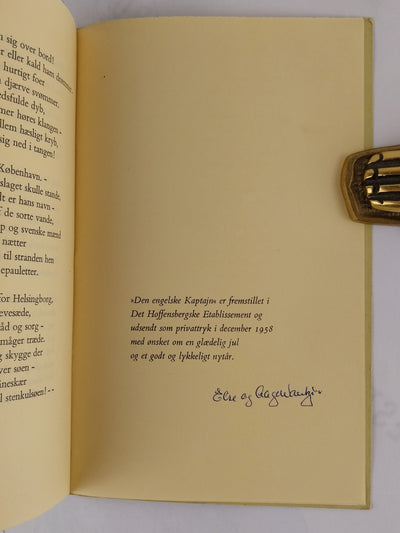 sig over bord!
er eller kald ham
hurtigt foer
djærve svømmer.
edsfulde dyb,
mer høres klangen
llem hæsligt kryb,
sig ned i tangen!
København. –
slaget skulle stande,
dt er hans navn –
af de sorte vande,
p og svenske mænd
nætter
til stranden hen
epauletter.
for Helsingborg,
evesæde,
åd og sorg –
måger træde.
skygge der
over søen –
ineskær
l stenkulsøen! –
»Den engelske Kaptajn« er fremstillet i
Det Hoffensbergske Etablissement og
udsendt som privattryk i december 1958
med ønsket om en glædelig jul
og et godt og lykkeligt nytår.
Else og Aage